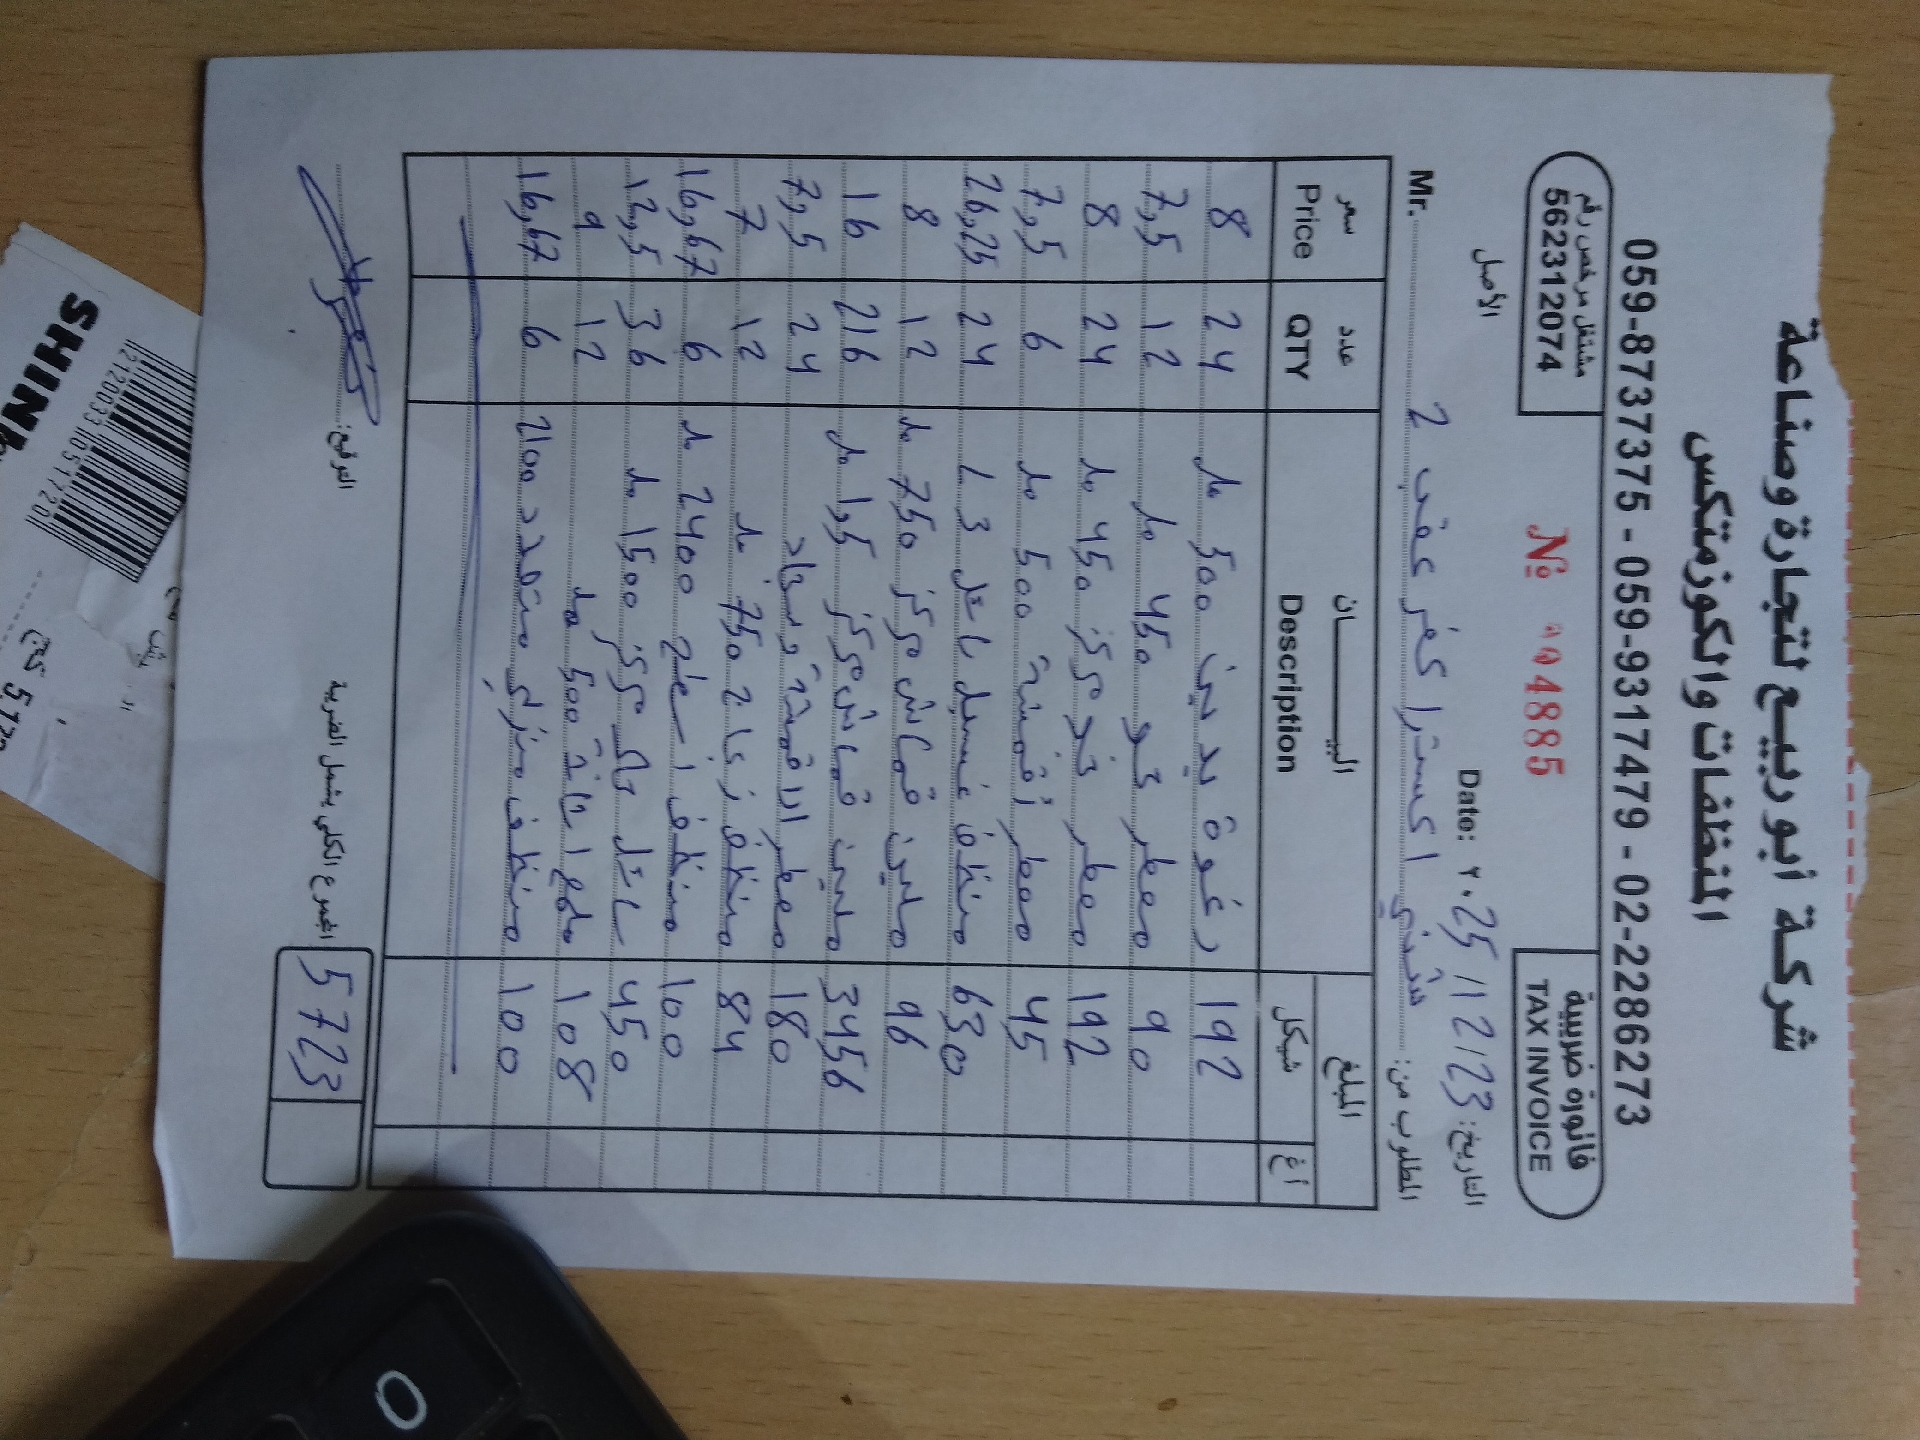 شركة أبو ربيع لتجارة وصناعة
المنظفات والكوزمتكس
059-8737375 - 059-9317479 - 02-2286273
مشتغل مرخص رقم
562312074
№ 004885
فاتورة ضريبية
TAX INVOICE
الأصل
Date: ٢٠25/12/23 التاريخ:
Mr. شيني اكسترا كفر عقب 2 المطلوب من:
سعر عدد البيـــــان المبلغ
Price QTY Description شيكل أغ
8 24 رغوة يدين 500 مل 192
7,5 12 معطر جو 450 مل 90
8 24 معطر جو مركز 450 مل 192
7,5 6 معطر أقمشة 500 مل 45
26,25 24 منظف غسيل سائل 3 L 630
8 12 ملين قماش مركز 750 مل 96
16 216 ملين قماش مركز 1,5 مل 3456
7,5 24 معطر الاقمشة وسجاد 180
7 12 منظف زجاج 750 مل 84
16,67 6 منظف اسطح 2400 مل 100
12,5 36 سائل جلي مركز 1500 مل 450
9 12 ملمع اثاث 500 مل 108
16,67 6 منظف منزلي متعدد 2100 100
التوقيع:
المجموع الكلي يشمل الضريبة 5723
SHIN
2120033105172​0
5.172
0